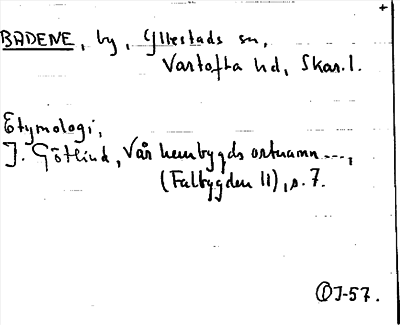 +
BADENE, by, Yllestads sn,
Vartofta hd, Skar. l.
Etymologi,
J. Götlind, Vår hembygds ortnamn ...,
(Falbygden II), s. 7.
ÖJ-57.